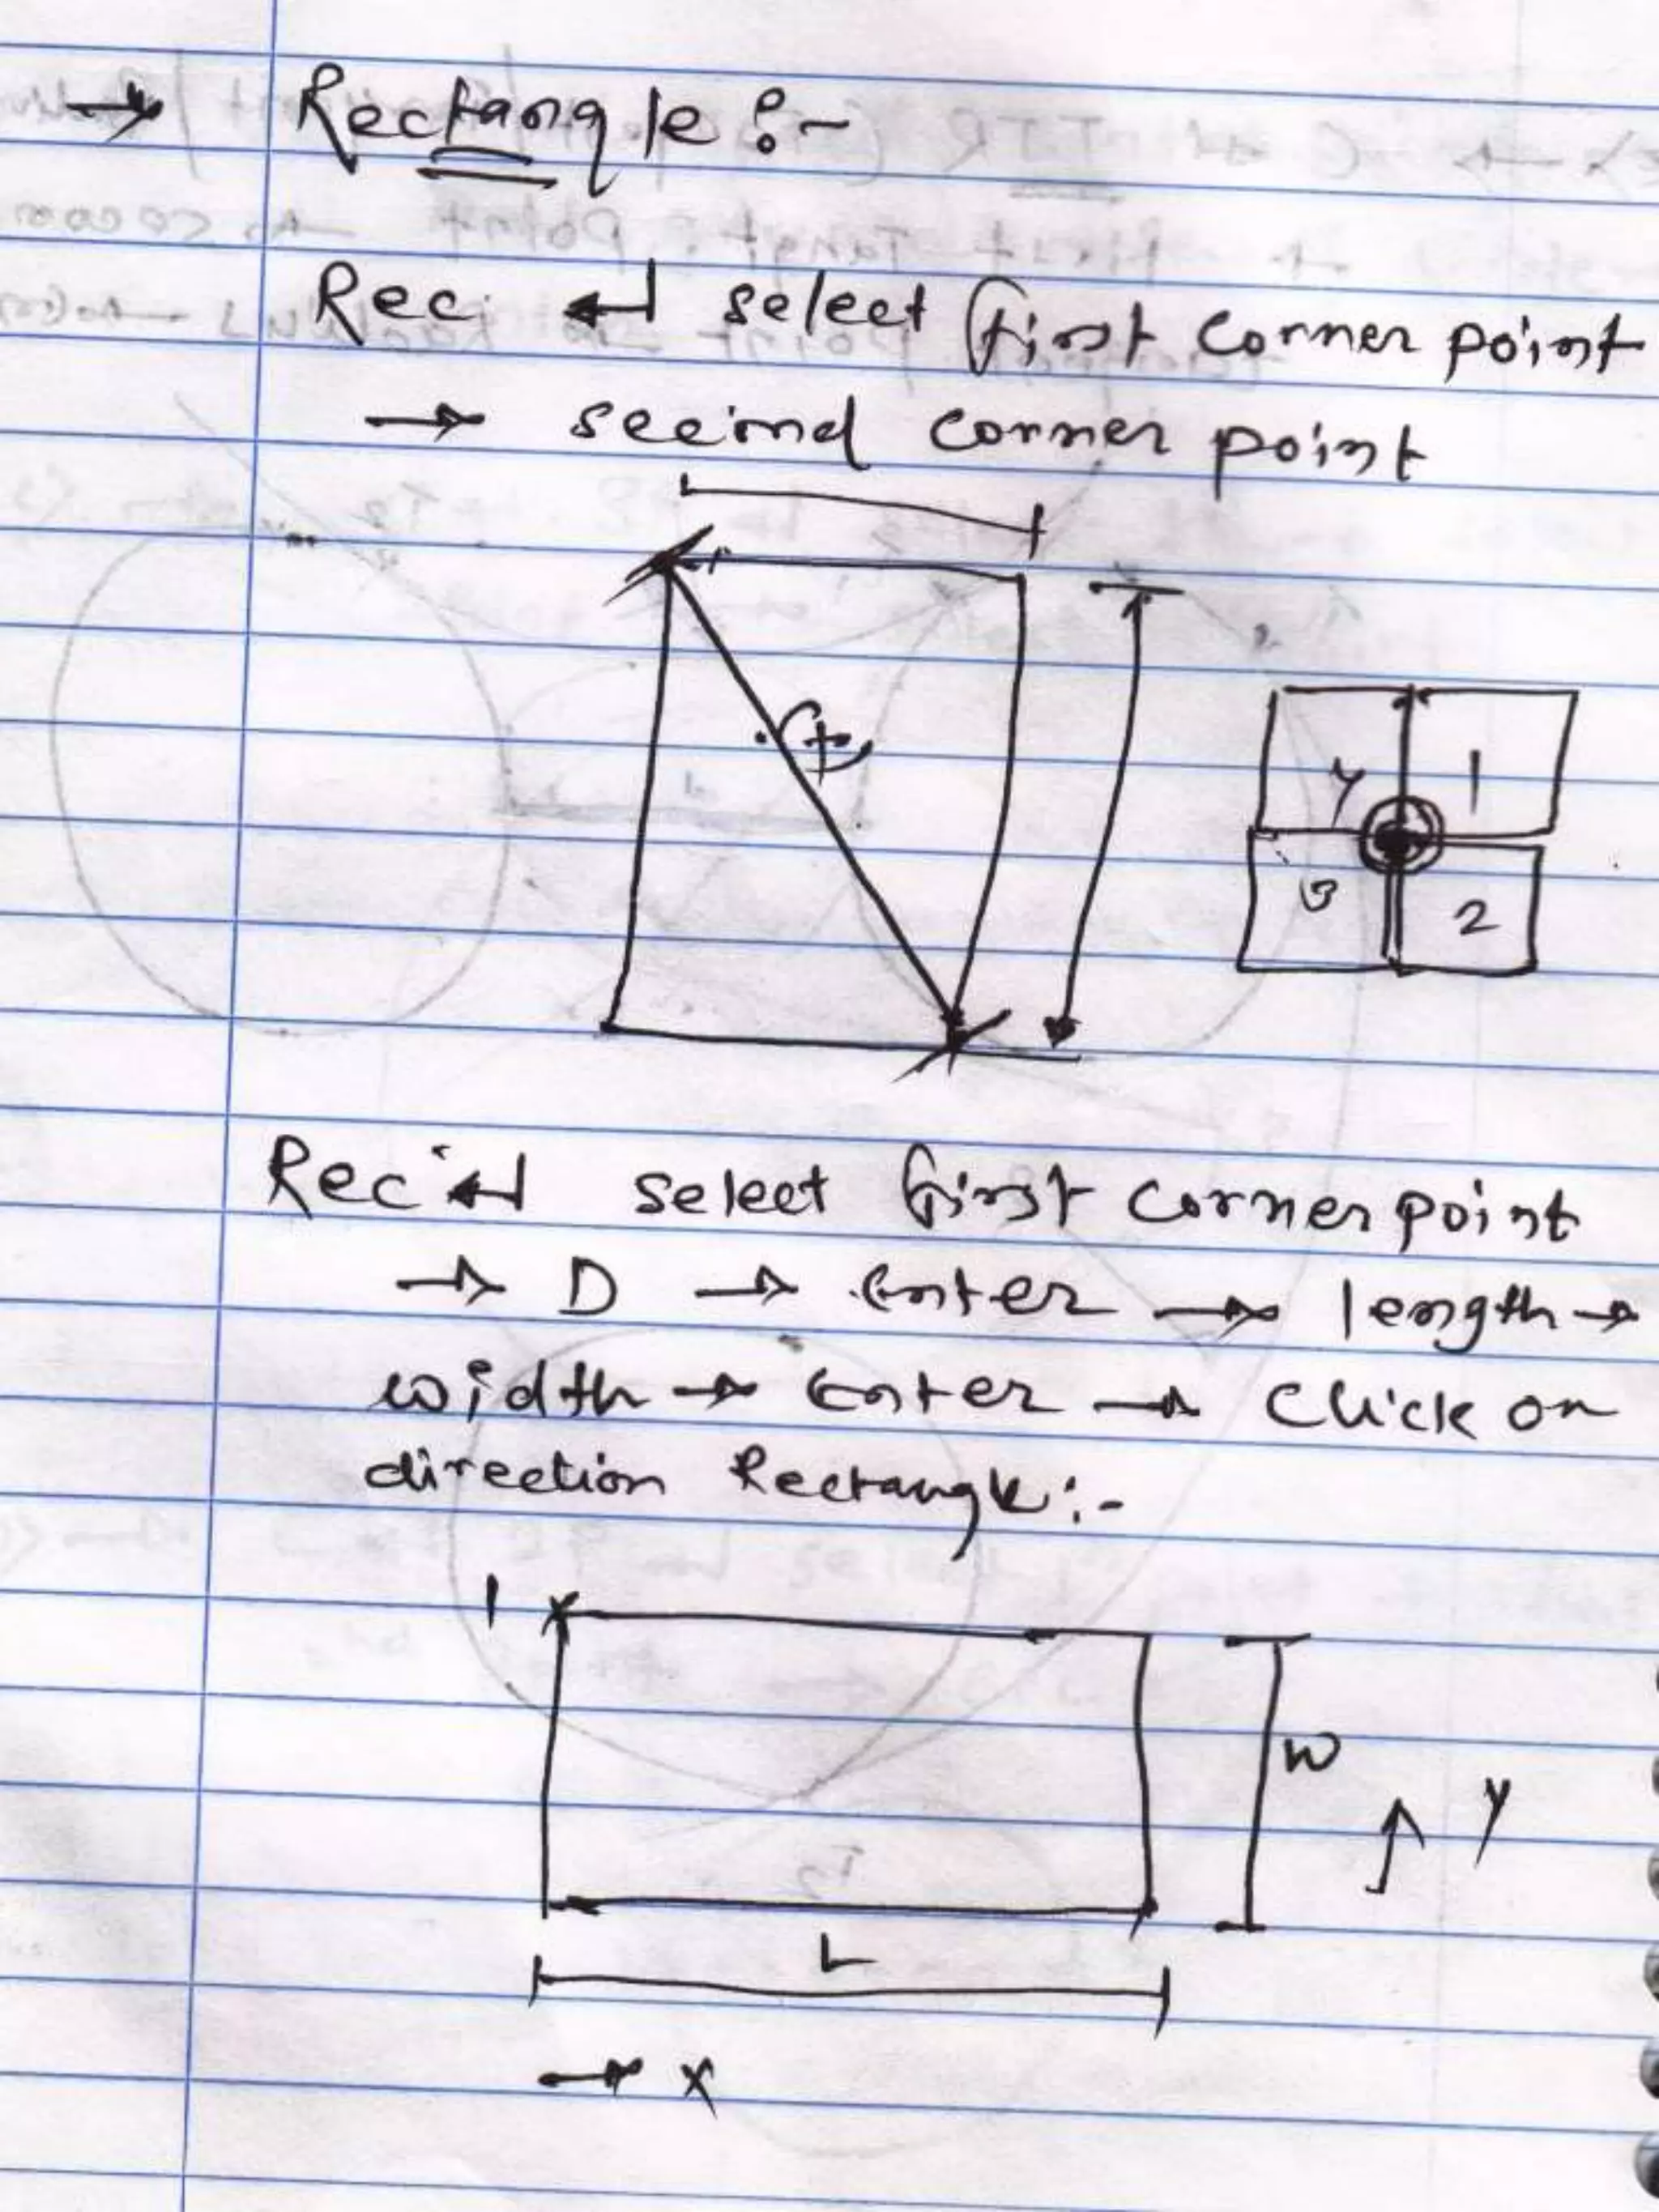 → Rectangle :-
Rec. ↵ select first corner point
→ second corner point
4 1
3 2
Rec ↵ select first corner point
→ D → Enter → length →
width → Enter → Click on
direction Rectangle :-
1
W
y
L
→ x